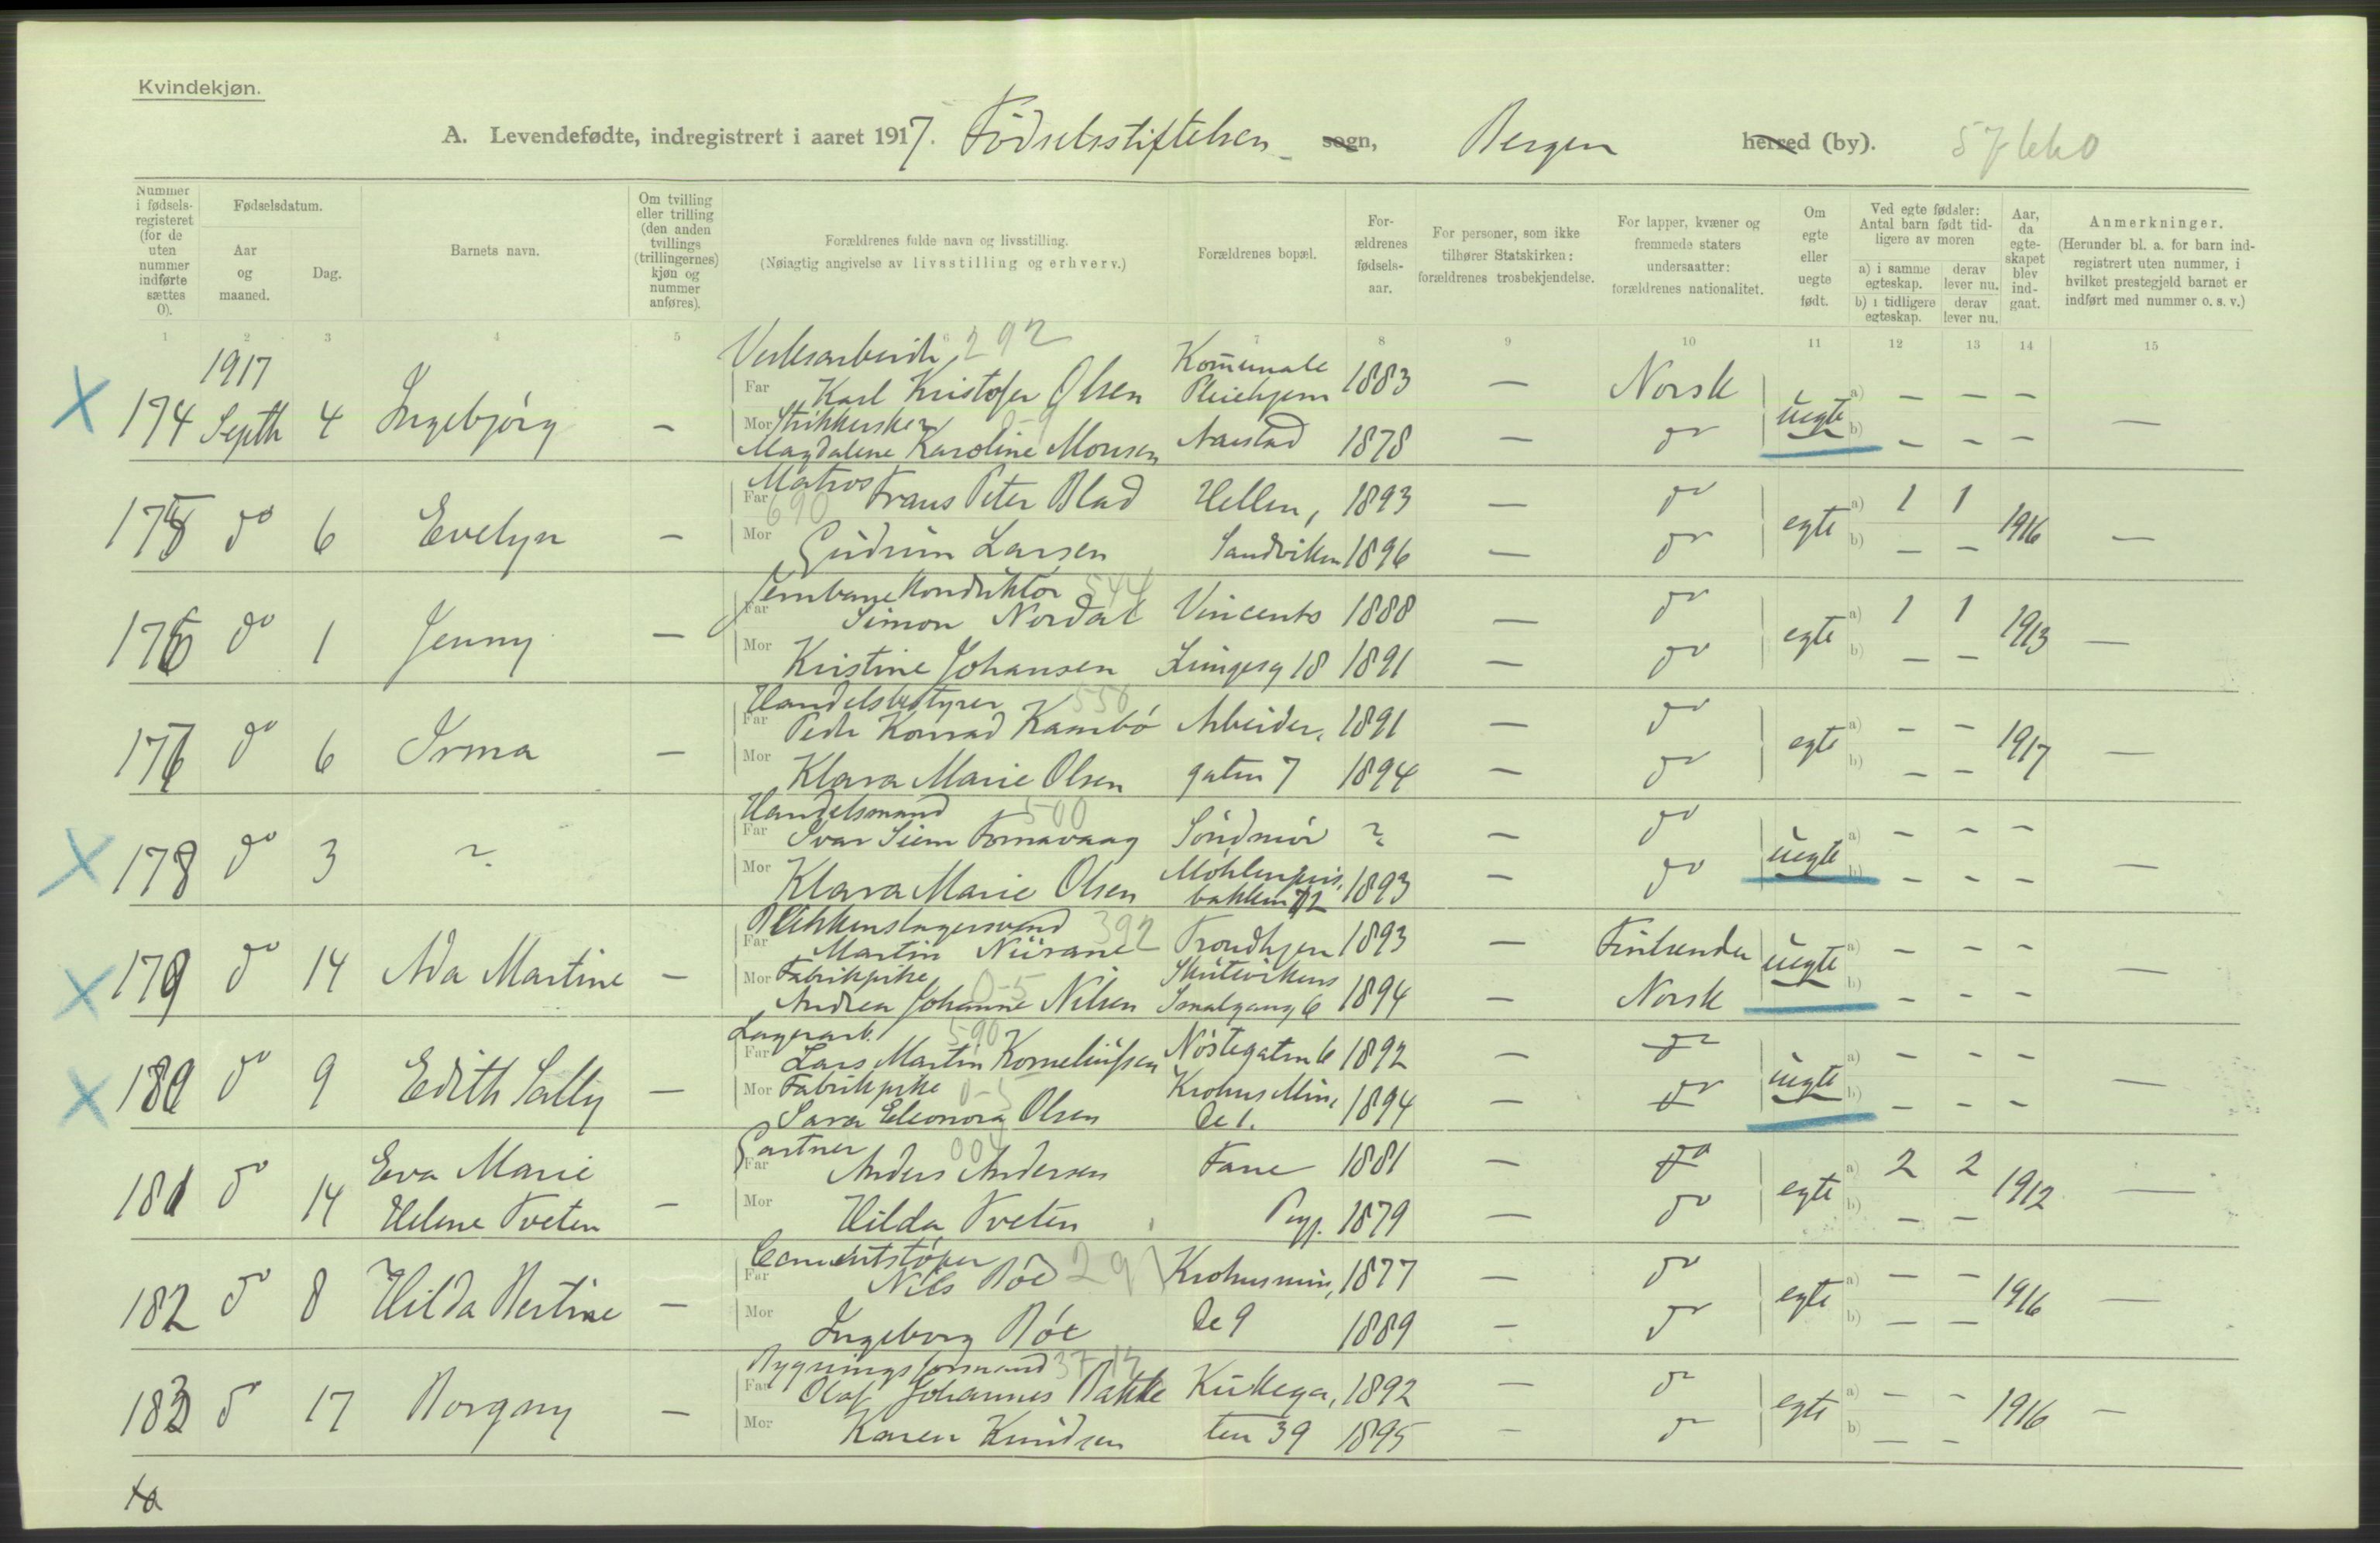 Kvindekjøn.
A. Levendefødte, indregistrert i aaret 1917. Fødselsstiftelsen sogn, Bergen herred (by).
Nummer i fødsels-registeret (for de uten nummer indførte sættes 0).
Fødselsdatum.
Aar og maaned.
Dag.
Barnets navn.
Om tvilling eller trilling (den anden tvillings (trillingernes) kjøn og nummer anføres).
Forældrenes fulde navn og livsstilling.
(Nøiagtig angivelse av livsstilling og erhverv.)
Forældrenes bopæl.
For-ældrenes fødsels-aar.
For personer, som ikke tilhører Statskirken: forældrenes trosbekjendelse.
For lapper, kvæner og fremmede staters undersaatter: forældrenes nationalitet.
Om egte eller uegte født.
Ved egte fødsler: Antal barn født tid-ligere av moren
a) i samme egteskap. derav lever nu.
b) i tidligere egteskap. derav lever nu.
Aar, da egte-skapet blev ind-gaat.
Anmerkninger.
(Herunder bl. a. for barn ind-registrert uten nummer, i hvilket prestegjeld barnet er indført med nummer o. s. v.)
1 2 3 4 5 6 7 8 9 10 11 12 13 14 15
1917
Verksarbeider 292 Komunale
Far Karl Kristofer Olsen Pleiehjem 1883 — Norsk a) — — —
174 Septb 4 Ingebjørg — uegte —
Mor Strikkerske 0-9
Magdalene Karoline Monsen 1878 — do b) — — —
Matros
Far 690 Frans Peter Blad Hellen, 1893 — do a) 1 1
175 do 6 Evelyn — egte 1916 —
Mor Gudrun Larsen Sandviken 1896 — do b) — —
Jernbanekonduktør 544
Far Simon Nordal Vincents 1888 — do a) 1 1
176 do 1 Jenny — egte 1913 —
Mor Kristine Johansen Lungesg 18 1891 — do b) — —
Handelsbestyrer 556
Far Peder Konrad Kambø Arbeider, 1891 — do a) — —
177 do 6 Irma — egte 1917 —
Mor Klara Marie Olsen gaten 7 1894 — do b) — —
Handelsmand 500
Far Ivar Siem Søndmør ? — do a) — — —
178 do 3 ? uegte —
Mor Klara Marie Olsen Møhlenpris, bakken 12 1893 — do b) — — —
Blikkenslagersvend 392
Far Martin Niirane Trondhjem 1893 — Finlender a) — — —
179 do 14 Ada Martine — uegte —
Mor Fabrikpike 0-5 Skutevikens
Andrea Johanne Nilsen Smalgang 6 1894 — Norsk b) — — —
Lagerarb. 590
Far Lars Martin Korneliussen Nøstegaten 6 1892 — do a) — — —
180 do 9 Edith Sally — uegte —
Mor Fabrikpike 0-5 Krohns Min,
Sara Eleonora Olsen de 1. 1894 — do b) — — —
Gartner 00
Far Anders Andersen Fane 1881 — do a) 2 2
181 do 14 Eva Marie Helene Tveten — egte 1912 —
Mor Hilda Tveten Pgj. 1879 — do b) — —
Cementstøper
Far Nils Bøe 291 Krohnsmin, 1877 — do a) — —
182 do 8 Hilda Bertine — egte 1916 —
Mor Ingeborg Bøe de 9 1889 — do b) — —
Bygningsformand
Far Olaf Johannes Bakke Kirkega, 1892 — do a) — —
183 do 17 Borgny — egte 1916 —
Mor Karen Knudsen ten 39 1895 — do b) — —